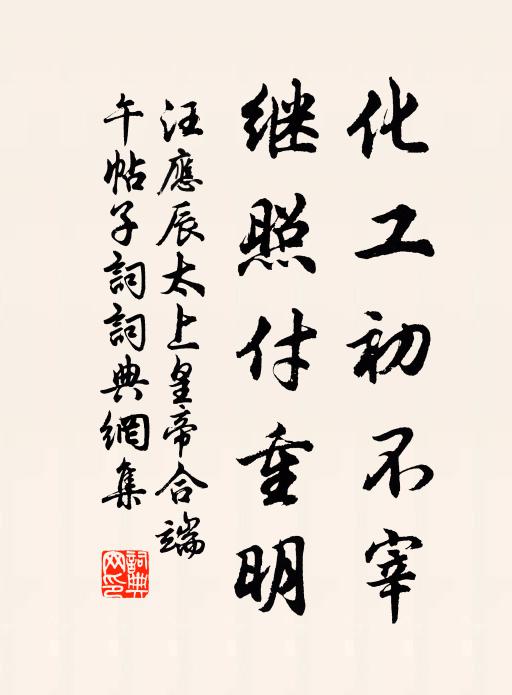 化工初不宰
继照付重明
汪應辰太上皇帝合端
午帖子詞詞典網集
詞典网印